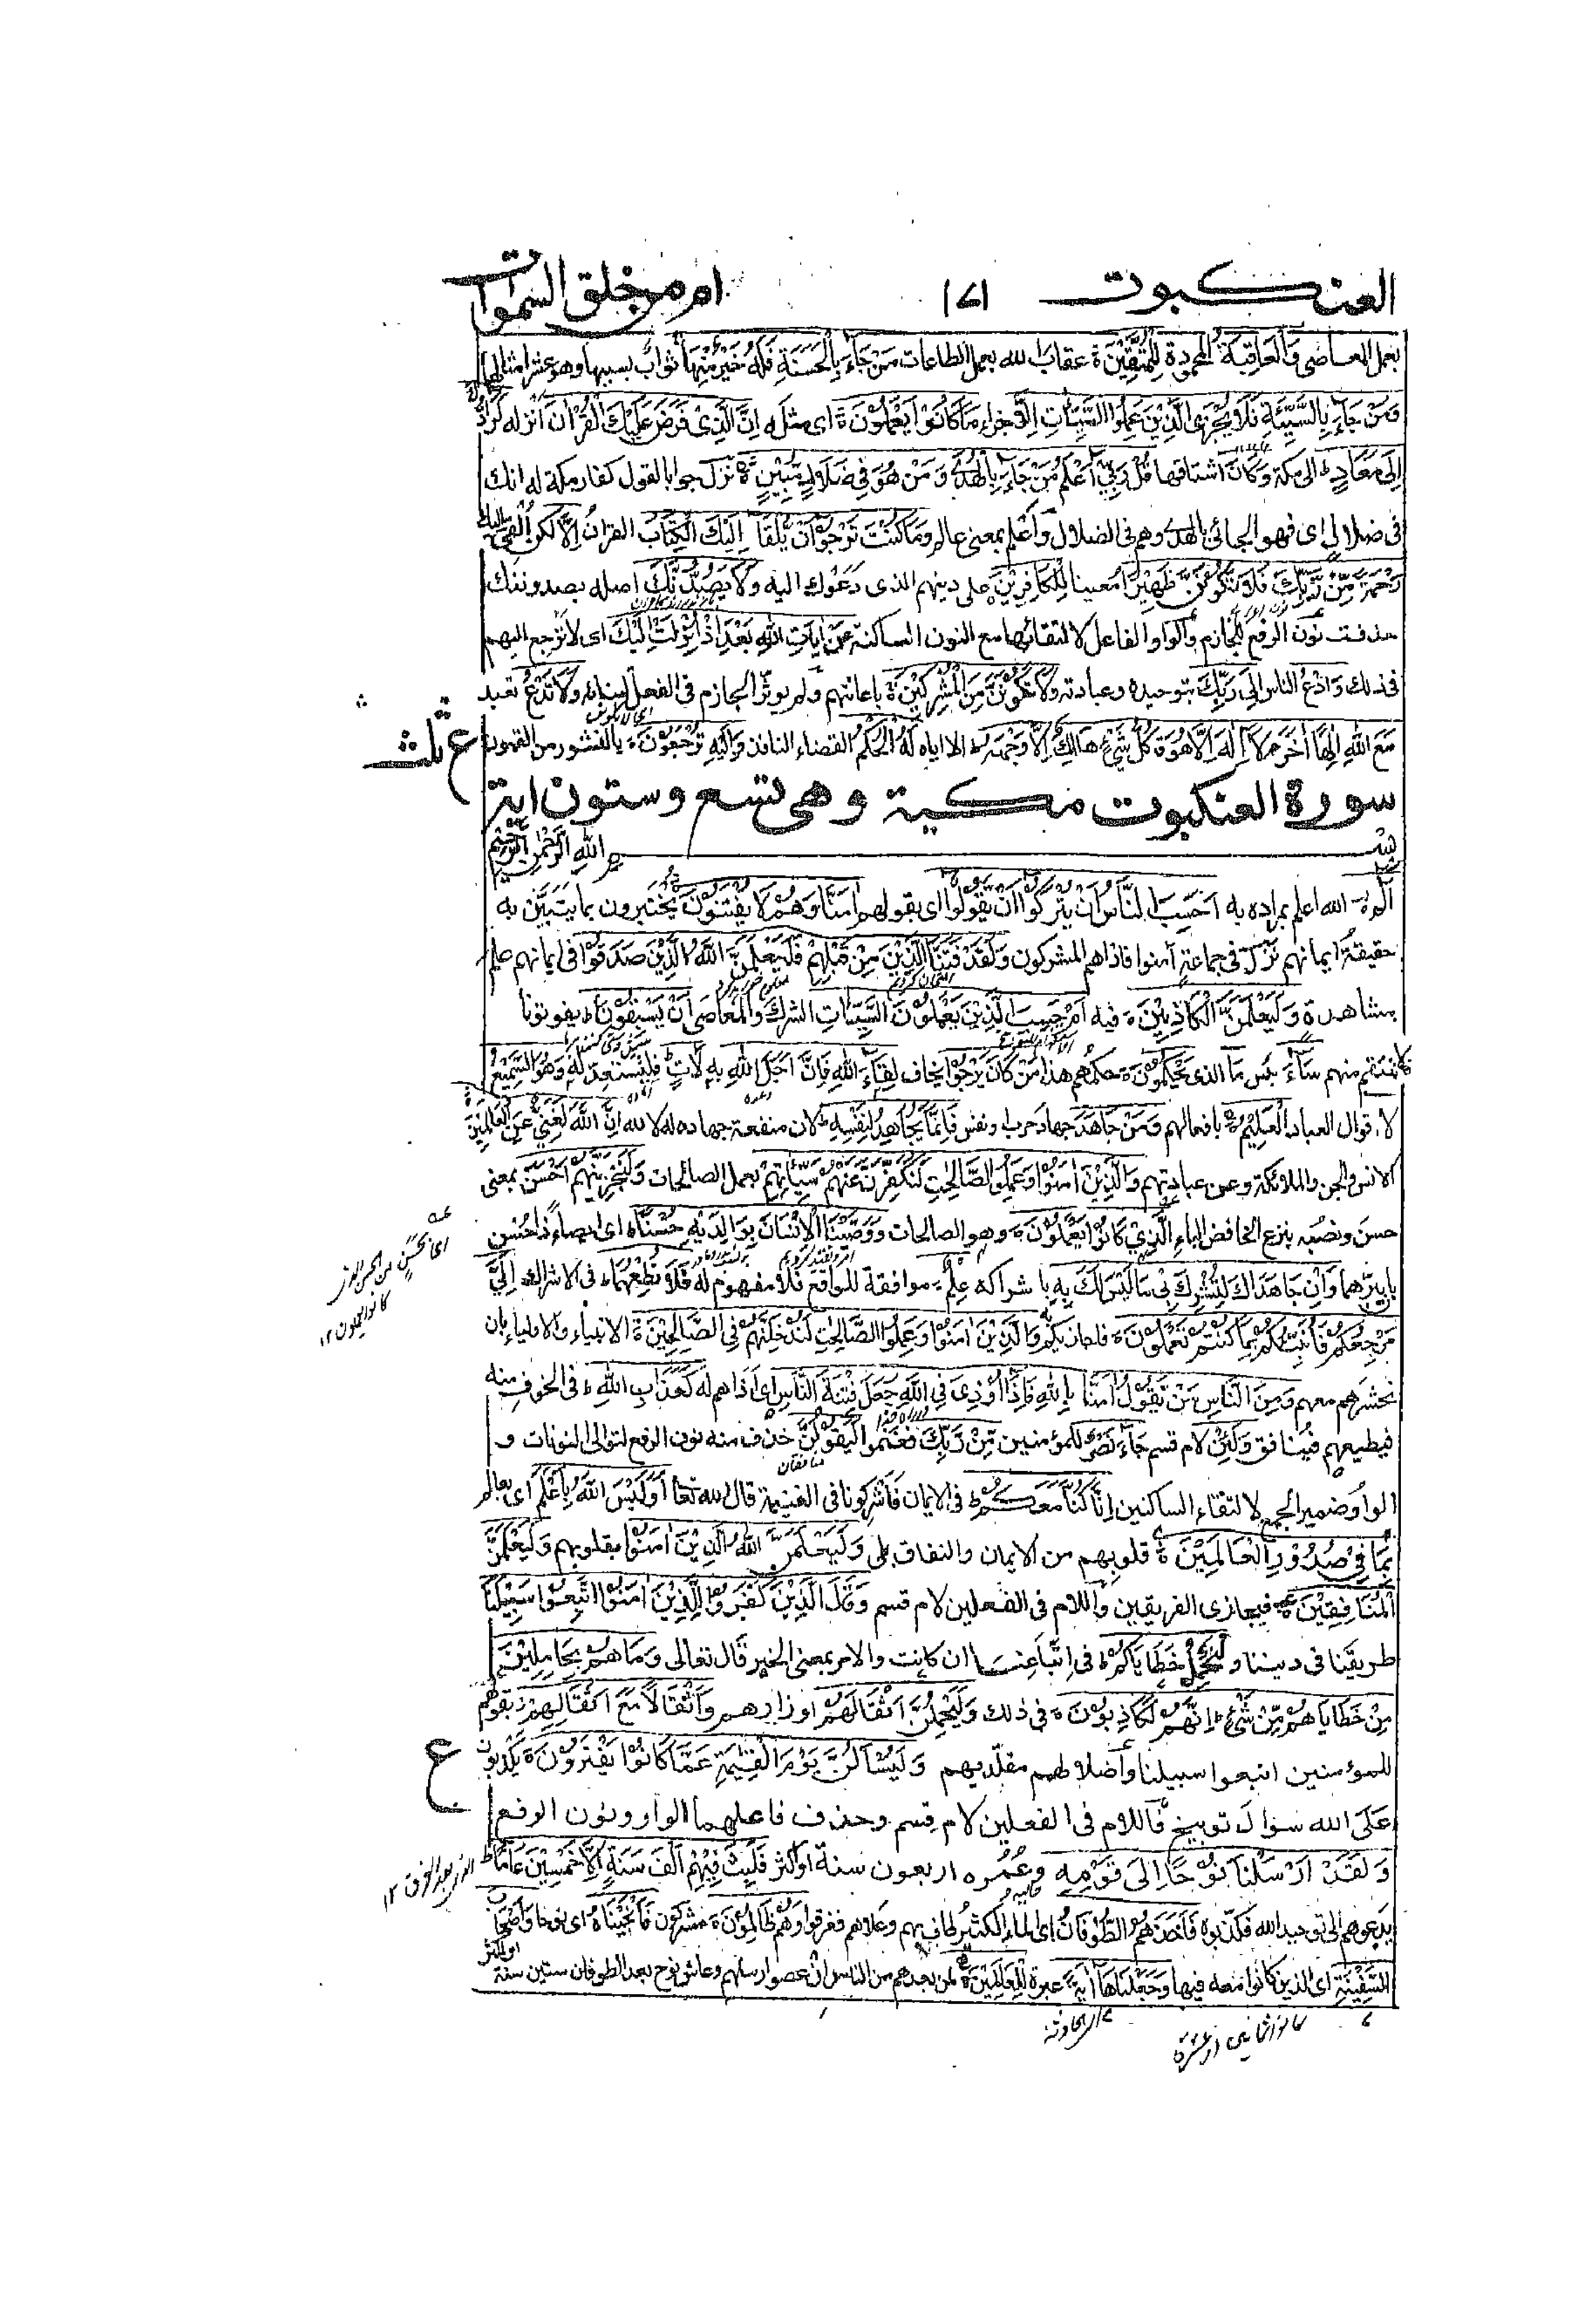 العنكبوت ١٧١ امن خلق السموات
بعمل المعاصى وَالْعَاقِبَةُ المحمودة لِلْمُتَّقِيْنَ عقابَ الله بعمل الطاعات مَنْ جَآءَ بِالْحَسَنَةِ فَلَهٗ خَيْرٌ مِّنْهَا ثوابٌ بسببها وهو عشر امثالها
وَمَنْ جَآءَ بِالسَّيِّئَةِ فَلَا يُجْزَى الَّذِيْنَ عَمِلُوا السَّيِّئٰتِ اِلَّا جزاء مَا كَانُوْا يَعْمَلُوْنَ اى مثله اِنَّ الَّذِىْ فَرَضَ عَلَيْكَ الْقُرْاٰنَ انزله لَرَآدُّكَ
اِلٰى مَعَادٍ الى مكة وكان اشتاقها قُلْ رَّبِّىْ اَعْلَمُ مَنْ جَآءَ بِالْهُدٰى وَمَنْ هُوَ فِىْ ضَلَالٍ مُّبِيْنٍ نزل جوابا لقول كفار مكة له انك
فى ضلال اى فهو الجائى بالهدى وهم فى الضلال واعلم بمعنى عالم وَمَا كُنْتَ تَرْجُوْا اَنْ يُّلْقٰى اِلَيْكَ الْكِتَابُ القران اِلَّا لكن اُلقى اليك
رَحْمَةً مِّنْ رَّبِّكَ فَلَا تَكُوْنَنَّ ظَهِيْرًا معينا لِّلْكَافِرِيْنَ على دينهم الذى دعوك اليه وَلَا يَصُدُّنَّكَ اصله يصدوننك
حذفت نون الرفع للجازم والواو الفاعل لالتقائها مع النون الساكنة عَنْ اٰيَاتِ اللهِ بَعْدَ اِذْ اُنْزِلَتْ اِلَيْكَ اى لا ترجع اليهم
فى ذلك وَادْعُ الناس اِلٰى رَبِّكَ بتوحيده وعبادته وَلَا تَكُوْنَنَّ مِنَ الْمُشْرِكِيْنَ باعانتهم ولم يوثر الجازم فى الفعل لبنائه وَلَا تَدْعُ تعبد
مَعَ اللهِ اِلٰهًا اٰخَرَ لَا اِلٰهَ اِلَّا هُوَ كُلُّ شَىْءٍ هَالِكٌ اِلَّا وَجْهَهٗ الا اياه لَهُ الْحُكْمُ القضاء النافذ وَاِلَيْهِ تُرْجَعُوْنَ بالنشور من القبور
ع ثلث
سورة العنكبوت مكية وهى تسع وستون اية
بسم الله الرحمن الرحيم
الٓمّٓ الله اعلم بمراده به اَحَسِبَ النَّاسُ اَنْ يُّتْرَكُوْا اَنْ يَّقُوْلُوْا اى بقولهم اٰمَنَّا وَهُمْ لَا يُفْتَنُوْنَ يختبرون بما يتبيّن به
حقيقةُ ايمانهم نزل فى جماعة اٰمنوا فاذاهم المشركون وَلَقَدْ فَتَنَّا الَّذِيْنَ مِنْ قَبْلِهِمْ فَلَيَعْلَمَنَّ اللهُ الَّذِيْنَ صَدَقُوْا فى ايمانهم علم
مشاهدة وَلَيَعْلَمَنَّ الْكَاذِبِيْنَ فيه اَمْ حَسِبَ الَّذِيْنَ يَعْمَلُوْنَ السَّيِّئَاتِ الشرك والمعاصى اَنْ يَّسْبِقُوْنَا يفوتونا
فلا ننتقم منهم سَآءَ بئس مَا الذى يَحْكُمُوْنَ حكمهم هذا مَنْ كَانَ يَرْجُوْا يخاف لِقَآءَ اللهِ فَاِنَّ اَجَلَ اللهِ به لَاٰتٍ فليستعد له وَهُوَ السَّمِيْعُ
لاقوال العباد الْعَلِيْمُ بافعالهم وَمَنْ جَاهَدَ جهاد حرب او نفس فَاِنَّمَا يُجَاهِدُ لِنَفْسِهٖ لان منفعة جهاده له لا لله اِنَّ اللهَ لَغَنِىٌّ عَنِ الْعَالَمِيْنَ
الانس والجن والملائكة وعن عبادتهم وَالَّذِيْنَ اٰمَنُوْا وَعَمِلُوا الصَّالِحٰتِ لَنُكَفِّرَنَّ عَنْهُمْ سَيِّاٰتِهِمْ بعمل الصالحات وَلَنَجْزِيَنَّهُمْ اَحْسَنَ بمعنى
حسن ونصبه بنزع الخافض الباء الَّذِىْ كَانُوْا يَعْمَلُوْنَ وهو الصالحات وَوَصَّيْنَا الْاِنْسَانَ بِوَالِدَيْهِ حُسْنًا اى ايصاء ذا حسن
بان يبرّهما وَاِنْ جَاهَدَاكَ لِتُشْرِكَ بِىْ مَا لَيْسَ لَكَ بِهٖ باشراكه عِلْمٌ موافقة للواقع فلا مفهوم له فَلَا تُطِعْهُمَا فى الاشراك اِلَىَّ
مَرْجِعُكُمْ فَاُنَبِّئُكُمْ بِمَا كُنْتُمْ تَعْمَلُوْنَ فاجازيكم وَالَّذِيْنَ اٰمَنُوْا وَعَمِلُوا الصَّالِحٰتِ لَنُدْخِلَنَّهُمْ فِى الصَّالِحِيْنَ الانبياء والاولياء بان
نحشرهم معهم وَمِنَ النَّاسِ مَنْ يَّقُوْلُ اٰمَنَّا بِاللهِ فَاِذَا اُوْذِىَ فِى اللهِ جَعَلَ فِتْنَةَ النَّاسِ اى اذاهم له كَعَذَابِ اللهِ فى الخوف منه
فيطيعهم فينافق وَلَئِنْ لام قسم جَآءَ نَصْرٌ للمؤمنين مِّنْ رَّبِّكَ فغنموا لَيَقُوْلُنَّ حذف منه نون الرفع لتوالى النونات و
الواو ضمير الجمع لالتقاء الساكنين اِنَّا كُنَّا مَعَكُمْ فى الايمان فاشركونا فى الغنيمة قال الله تعالى اَوَلَيْسَ اللهُ بِاَعْلَمَ اى بعالم
بِمَا فِىْ صُدُوْرِ الْعَالَمِيْنَ قلوبهم من الايمان والنفاق بلى وَلَيَعْلَمَنَّ اللهُ الَّذِيْنَ اٰمَنُوْا بقلوبهم وَلَيَعْلَمَنَّ
الْمُنَافِقِيْنَ فيجازى الفريقين واللام فى الفعلين لام قسم وَقَالَ الَّذِيْنَ كَفَرُوْا لِلَّذِيْنَ اٰمَنُوْا اتَّبِعُوْا سَبِيْلَنَا
طريقنا فى ديننا وَلْنَحْمِلْ خَطَايَاكُمْ فى اتباعنا ان كانت والامر بمعنى الخبر قال تعالى وَمَا هُمْ بِحَامِلِيْنَ
مِنْ خَطَايَاهُمْ مِّنْ شَىْءٍ اِنَّهُمْ لَكَاذِبُوْنَ فى ذلك وَلَيَحْمِلُنَّ اَثْقَالَهُمْ اوزارهم وَاَثْقَالًا مَّعَ اَثْقَالِهِمْ بقولهم
للمؤمنين اتبعوا سبيلنا واضلالهم مقلّديهم وَلَيُسْاَلُنَّ يَوْمَ الْقِيٰمَةِ عَمَّا كَانُوْا يَفْتَرُوْنَ يكذبون
ع
على الله سؤال توبيخ فاللام فى الفعلين لام قسم وحذف فاعلهما الواو ونون الرفع
وَلَقَدْ اَرْسَلْنَا نُوْحًا اِلٰى قَوْمِهٖ وعمره اربعون سنة او اكثر فَلَبِثَ فِيْهِمْ اَلْفَ سَنَةٍ اِلَّا خَمْسِيْنَ عَامًا
يدعوهم الى توحيد الله فكذبوه فَاَخَذَهُمُ الطُّوْفَانُ اى الماء الكثير طاف بهم وعلاهم فغرقوا وَهُمْ ظَالِمُوْنَ مشركون فَاَنْجَيْنَاهُ اى نوحا وَاَصْحَابَ
السَّفِيْنَةِ اى الذين كانوا معه فيها وَجَعَلْنَاهَا اٰيَةً عبرة لِّلْعَالَمِيْنَ لمن بعدهم من الناس ان عصوا رسلهم وعاش نوح بعد الطوفان ستين سنة او اكثر